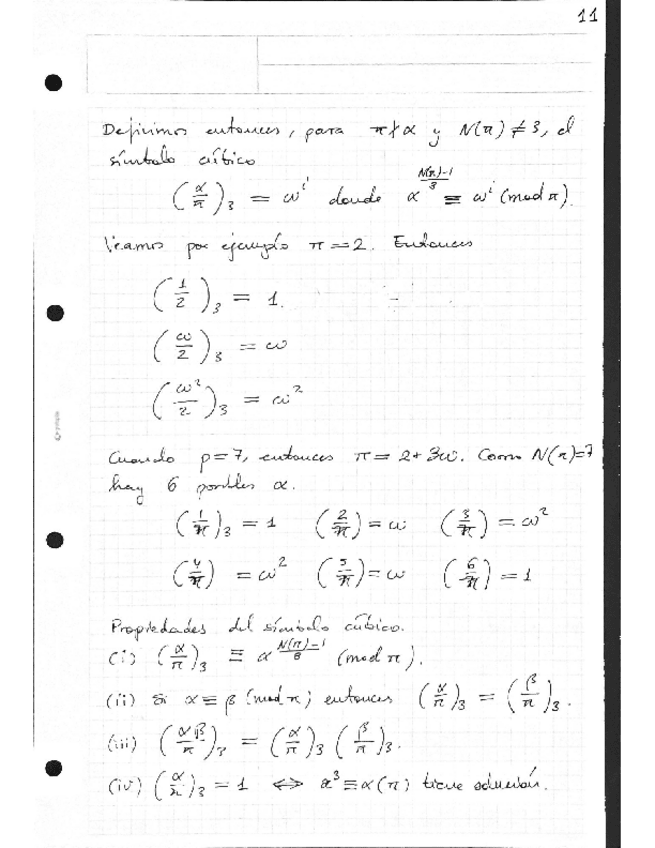 11
Definimos entonces, para π∤α y N(π) ≠ 3, el
símbolo cúbico
(α/π)₃ = ωⁱ donde α^((N(π)-1)/3) ≡ ωⁱ (mod π).
Veamos por ejemplo π = 2. Entonces
(1/2)₃ = 1.
(ω/2)₃ = ω
(ω²/2)₃ = ω²
Cuando p=7, entonces π = 2+3ω. Como N(π)=7
hay 6 posibles α.
(1/π)₃ = 1 (2/π) = ω (3/π) = ω²
(4/π) = ω² (5/π) = ω (6/π) = 1
Propiedades del símbolo cúbico.
(i) (α/π)₃ ≡ α^((N(π)-1)/3) (mod π).
(ii) Si α ≡ β (mod π) entonces (α/π)₃ = (β/π)₃.
(iii) (αβ/π)₃ = (α/π)₃ (β/π)₃.
(iv) (α/π)₃ = 1 ⇔ x³ ≡ α (π) tiene solución.